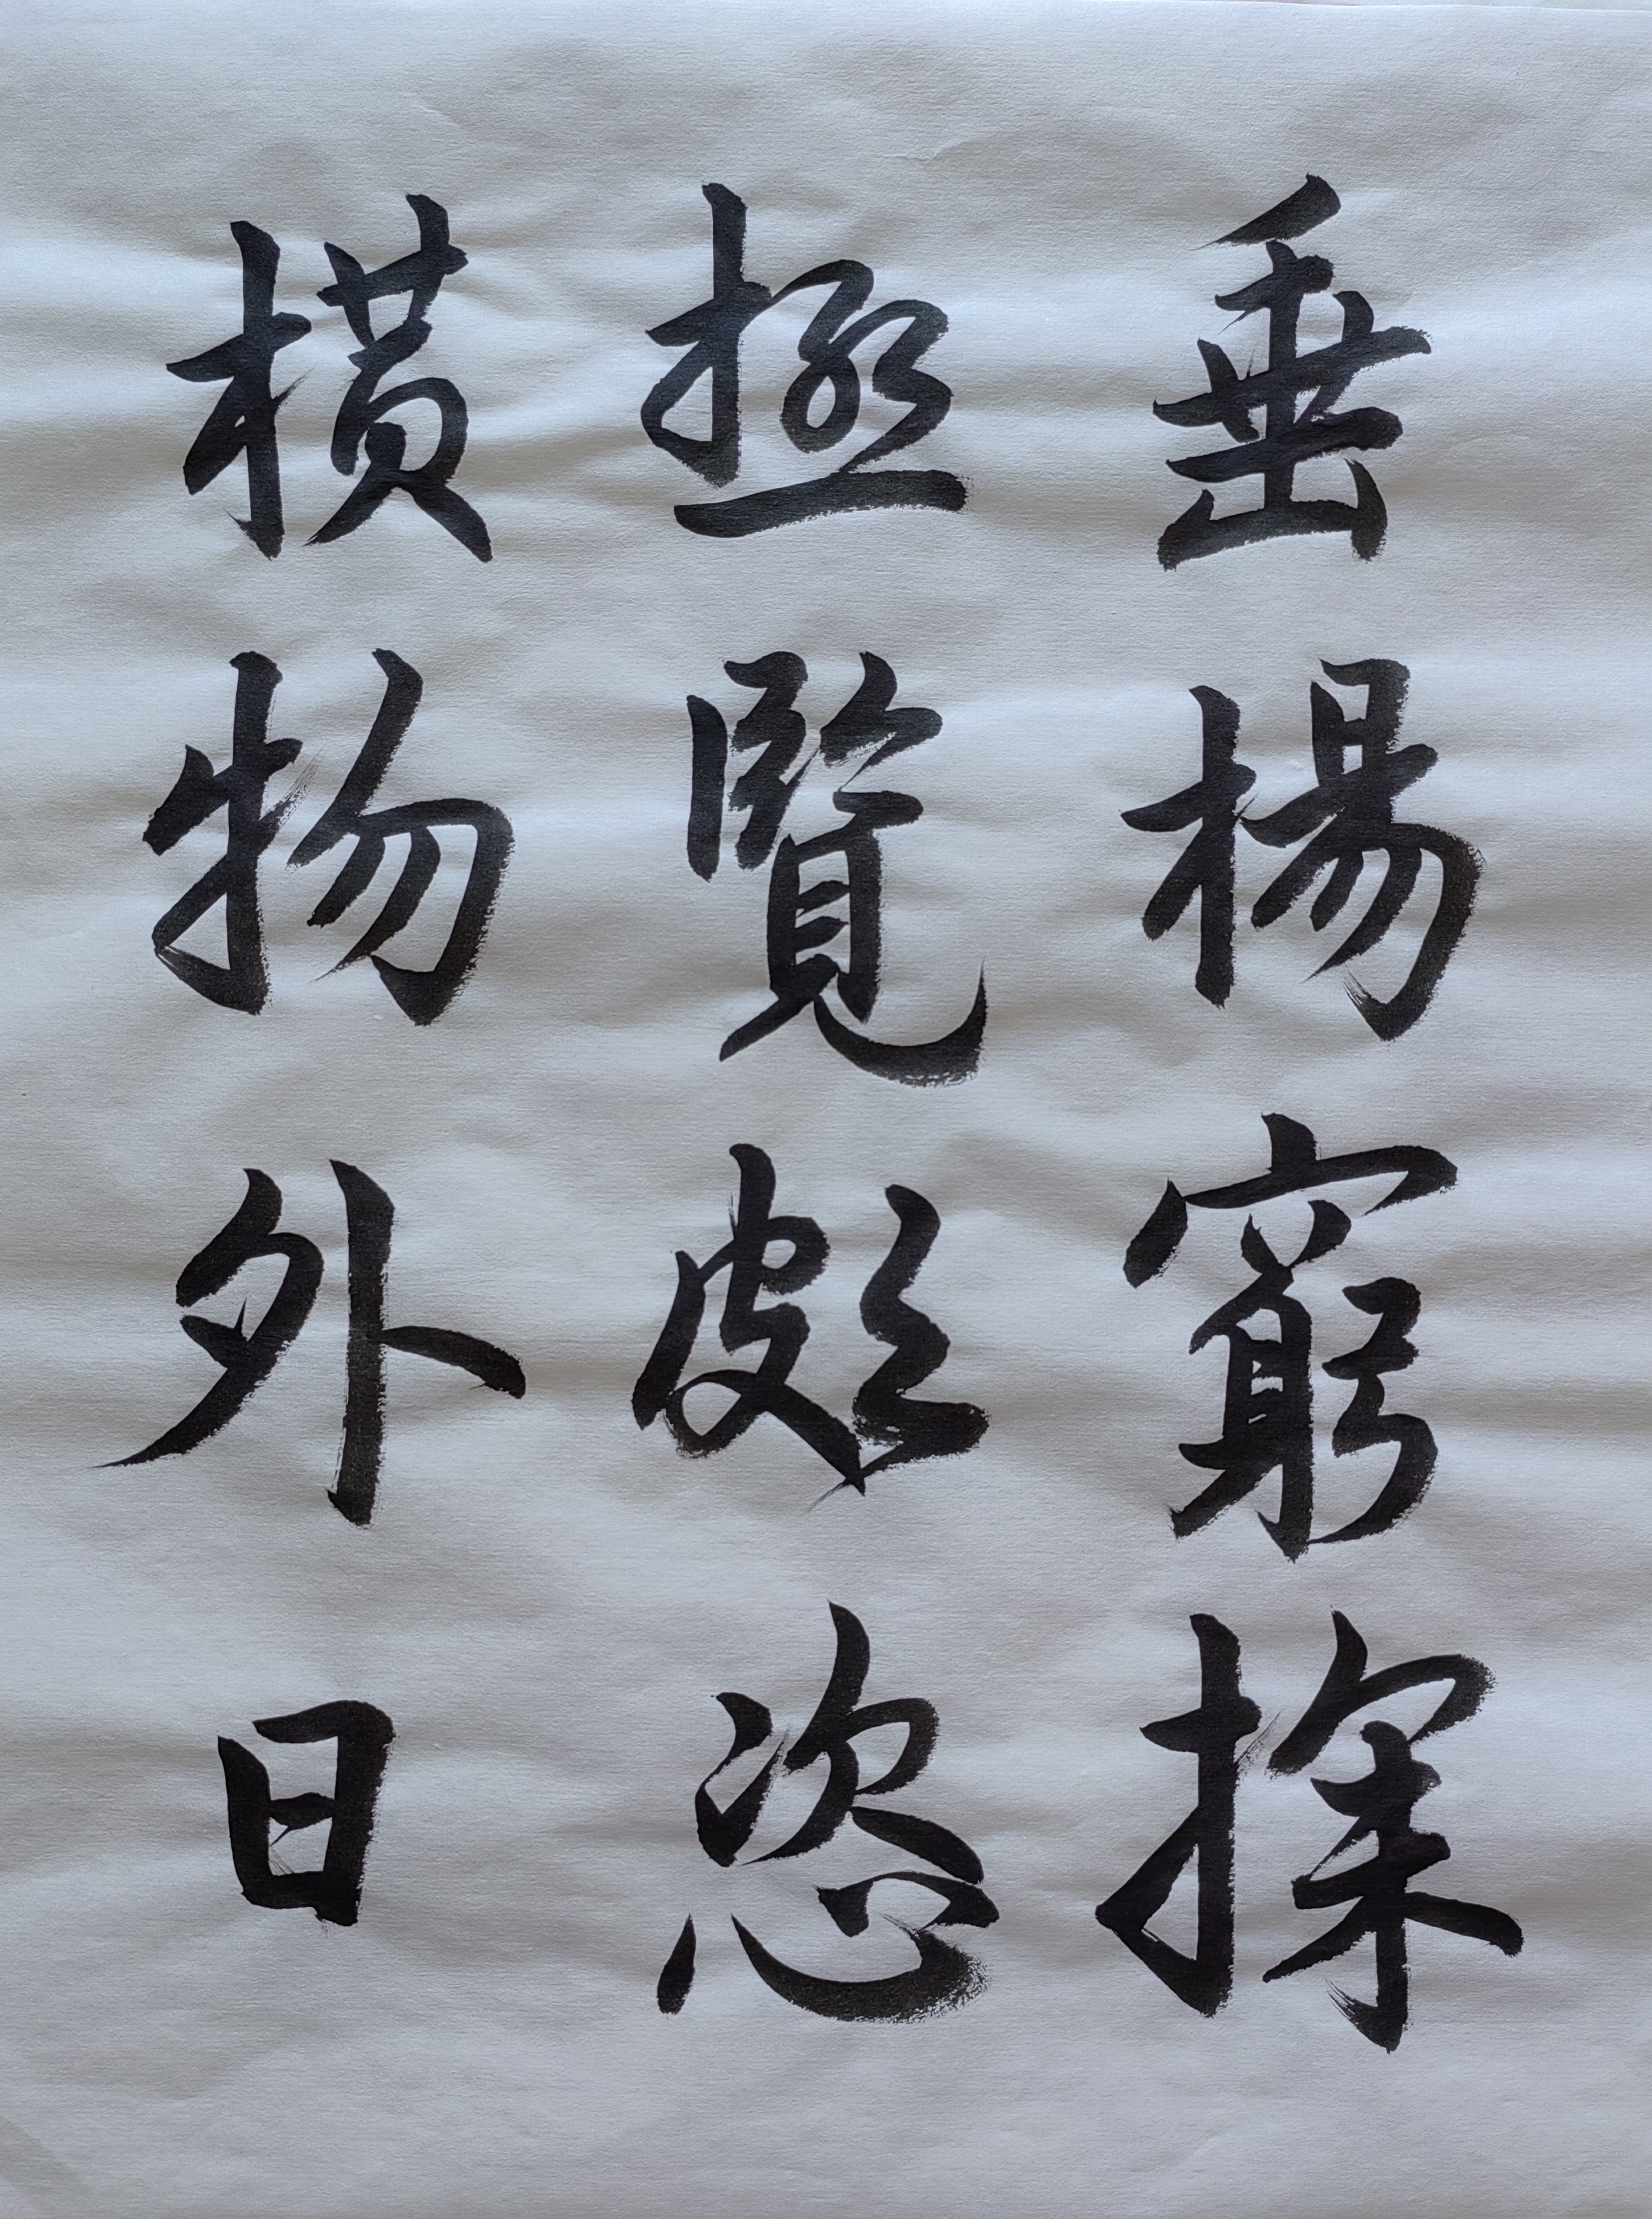 垂楊窮探
極覽頗恣
横物外日